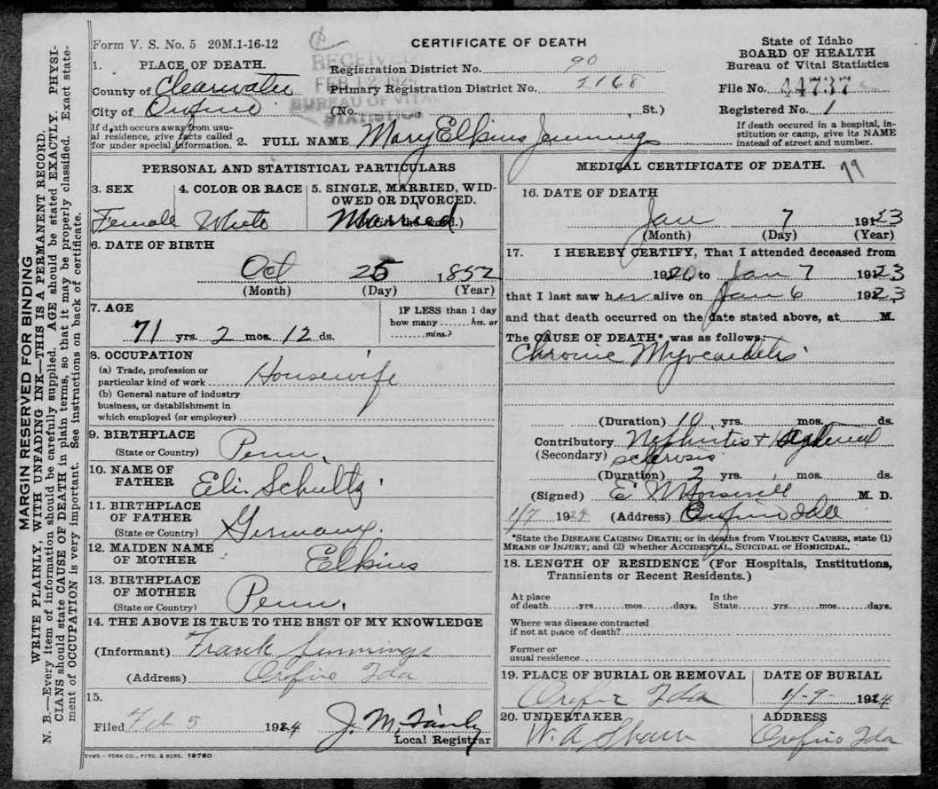 MARGIN RESERVED FOR BINDING
WRITE PLAINLY, WITH UNFADING INK—THIS IS A PERMANENT RECORD.
N. B.—Every item of information should be carefully supplied. AGE should be stated EXACTLY. PHYSI-
CIANS should state CAUSE OF DEATH in plain terms, so that it may be properly classified. Exact state-
ment of OCCUPATION is very important. See instructions on back of certificate.
Form V. S. No. 5 20M.1-16-12
CERTIFICATE OF DEATH
State of Idaho
BOARD OF HEALTH
Bureau of Vital Statistics
RECEIVED
FEB
BUREAU OF VITAL
STATISTICS
1. PLACE OF DEATH.
County of Clearwater
City of Orofino
Registration District No. 90
Primary Registration District No. 2168
(No. St.)
File No. 44737
Registered No. 1
If death occurs away from usu-
al residence, give facts called
for under special information.
If death occurred in a hospital, in-
stitution or camp, give its NAME
instead of street and number.
2. FULL NAME Mary Elkins Jennings
PERSONAL AND STATISTICAL PARTICULARS
3. SEX
Female
4. COLOR OR RACE
White
5. SINGLE, MARRIED, WID-
OWED OR DIVORCED.
Married
6. DATE OF BIRTH
Oct 25 1852
(Month) (Day) (Year)
7. AGE
71 yrs. 2 mos. 12 ds.
IF LESS than 1 day
how many hrs. or
mins.?
8. OCCUPATION
(a) Trade, profession or
particular kind of work Housewife
(b) General nature of industry
business, or dstablishment in
which employed (or employer)
9. BIRTHPLACE
(State or Country) Penn.
10. NAME OF
FATHER Eli Schultz
11. BIRTHPLACE
OF FATHER
(State or Country) Germany.
12. MAIDEN NAME
OF MOTHER Elkins
13. BIRTHPLACE
OF MOTHER
(State or Country) Penn.
14. THE ABOVE IS TRUE TO THE BEST OF MY KNOWLEDGE
(Informant) Frank Jennings
(Address) Orofino Ida
15.
Filed Feb 5 1924
J. M.
Local Registrar
SYMS - YORK CO., PTRS. & BDRS. 19760
MEDICAL CERTIFICATE OF DEATH.
16. DATE OF DEATH
Jan 7 1923
(Month) (Day) (Year)
17. I HEREBY CERTIFY, That I attended deceased from
1920 to Jan 7 1923
that I last saw her alive on Jan 6 1923
and that death occurred on the date stated above, at M.
The CAUSE OF DEATH* was as follows:
Chronic Myocarditis
(Duration) 10 yrs. mos. ds.
Contributory Nephritis +
(Secondary) sclerosis
(Duration) 2 yrs. mos. ds.
(Signed) E. M. M. D.
1/7 1924 (Address) Orofino Ida
*State the DISEASE CAUSING DEATH; or in deaths from VIOLENT CAUSES, state (1)
MEANS OF INJURY; and (2) whether ACCIDENTAL, SUICIDAL OR HOMICIDAL.
18. LENGTH OF RESIDENCE (For Hospitals, Institutions,
Transients or Recent Residents.)
At place
of death yrs. mos. days.
In the
State yrs. mos. days.
Where was disease contracted
if not at place of death?
Former or
usual residence
19. PLACE OF BURIAL OR REMOVAL
Orofino Ida
DATE OF BURIAL
1/-9- 1924
20. UNDERTAKER
W. A.
ADDRESS
Orofino Ida